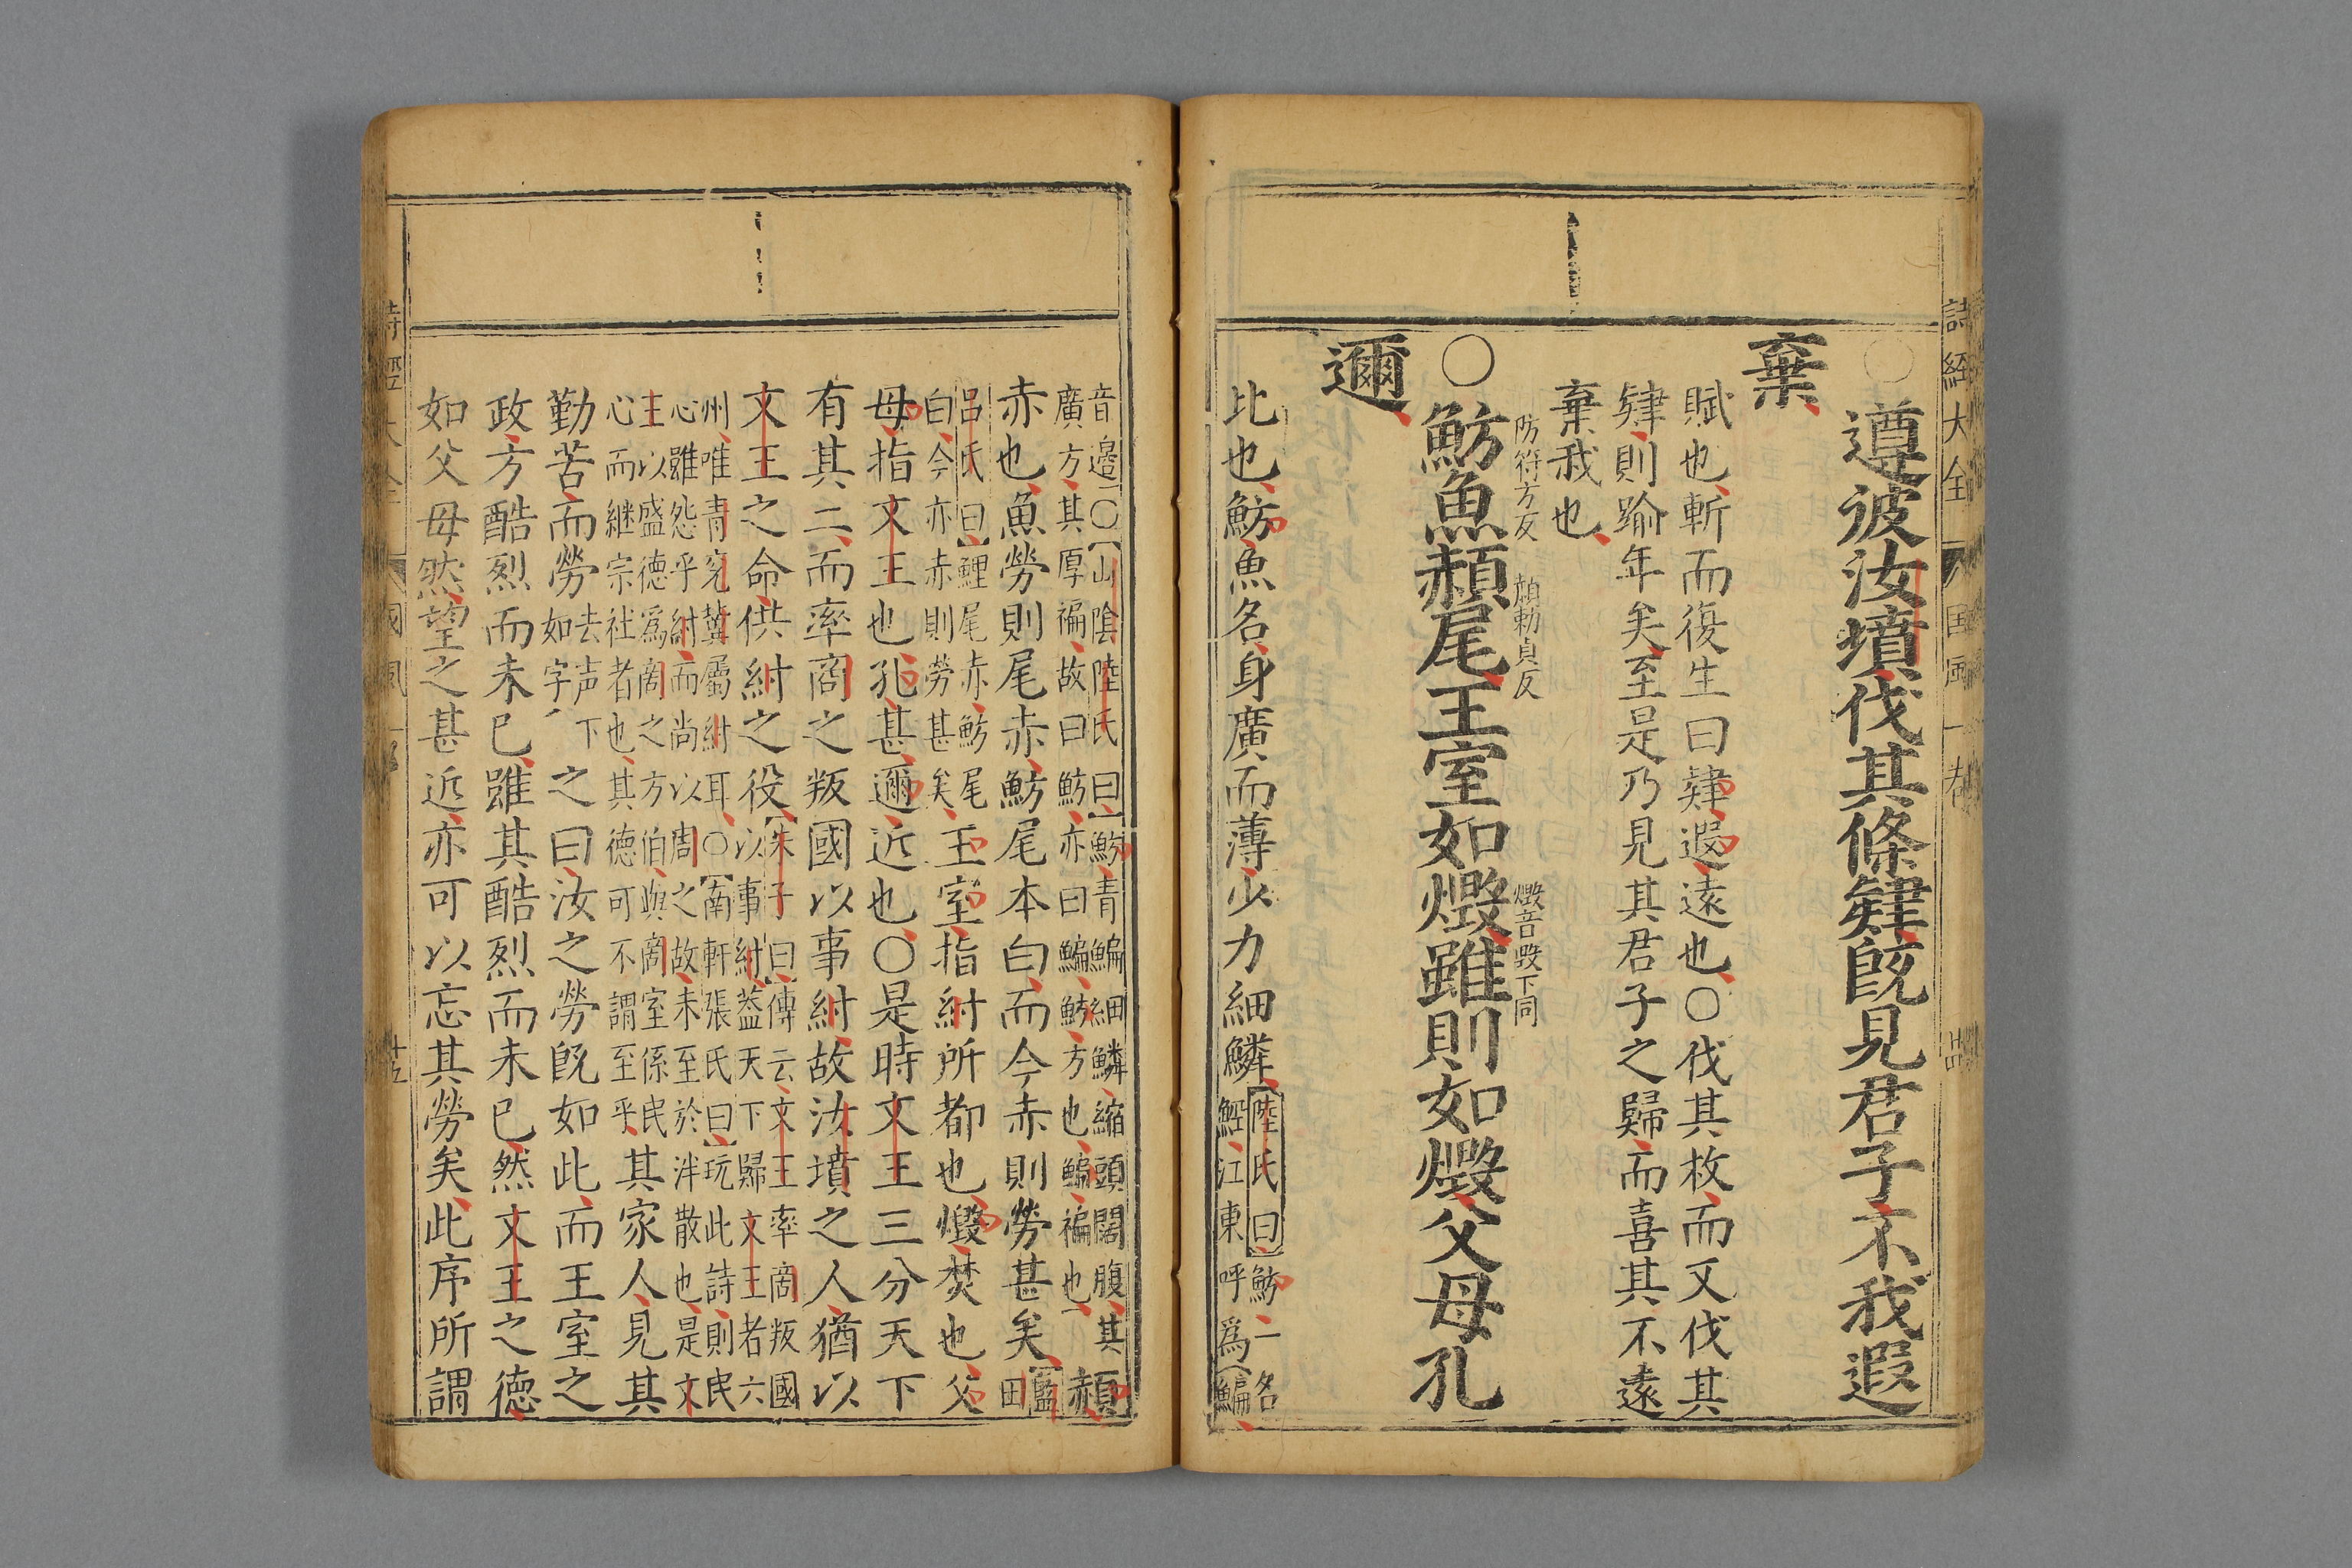 詩經大全 国風一卷
○遵彼汝墳伐其條肄既見君子不我遐
棄
賦也斬而復生曰肄遐遠也○伐其枚而又伐其
肄則踰年矣至是乃見其君子之歸而喜其不遠
棄我也
魴符方反 赬勅貞反 燬音毀下同
○魴魚赬尾王室如燬雖則如燬父母孔
邇
比也魴魚名身廣而薄少力細鱗
陸氏曰魴一名
魾江東呼爲鯿
音邉○山陰陸氏曰魴青鯿細鱗縮頭闊腹其
廣方其厚褊故曰魴亦曰鯿魴方也鯿褊也
赬
赤也魚勞則尾赤魴尾本白而今赤則勞甚矣
藍田
呂氏曰鯉尾赤魴尾
白今亦赤則勞甚矣
王室指紂所都也燬焚也父
母指文王也孔甚邇近也○是時文王三分天下
有其二而率商之叛國以事紂故汝墳之人猶以
文王之命供紂之役
朱子曰傳云文王率商叛國
以事紂蓋天下歸文王者六
州唯青兖冀屬紂耳○南軒張氏曰玩此詩則民
心雖怨乎紂而尚以周之故未至於泮散也是文
王以盛德爲商之方伯與商室係民
心而継宗社者也其徳可不謂至乎
其家人見其
勤苦而勞
去声下
如字
之曰汝之勞既如此而王室之
政方酷烈而未已雖其酷烈而未已然文王之徳
如父母然望之甚近亦可以忘其勞矣此序所謂
詩經大全 國風一卷 十五